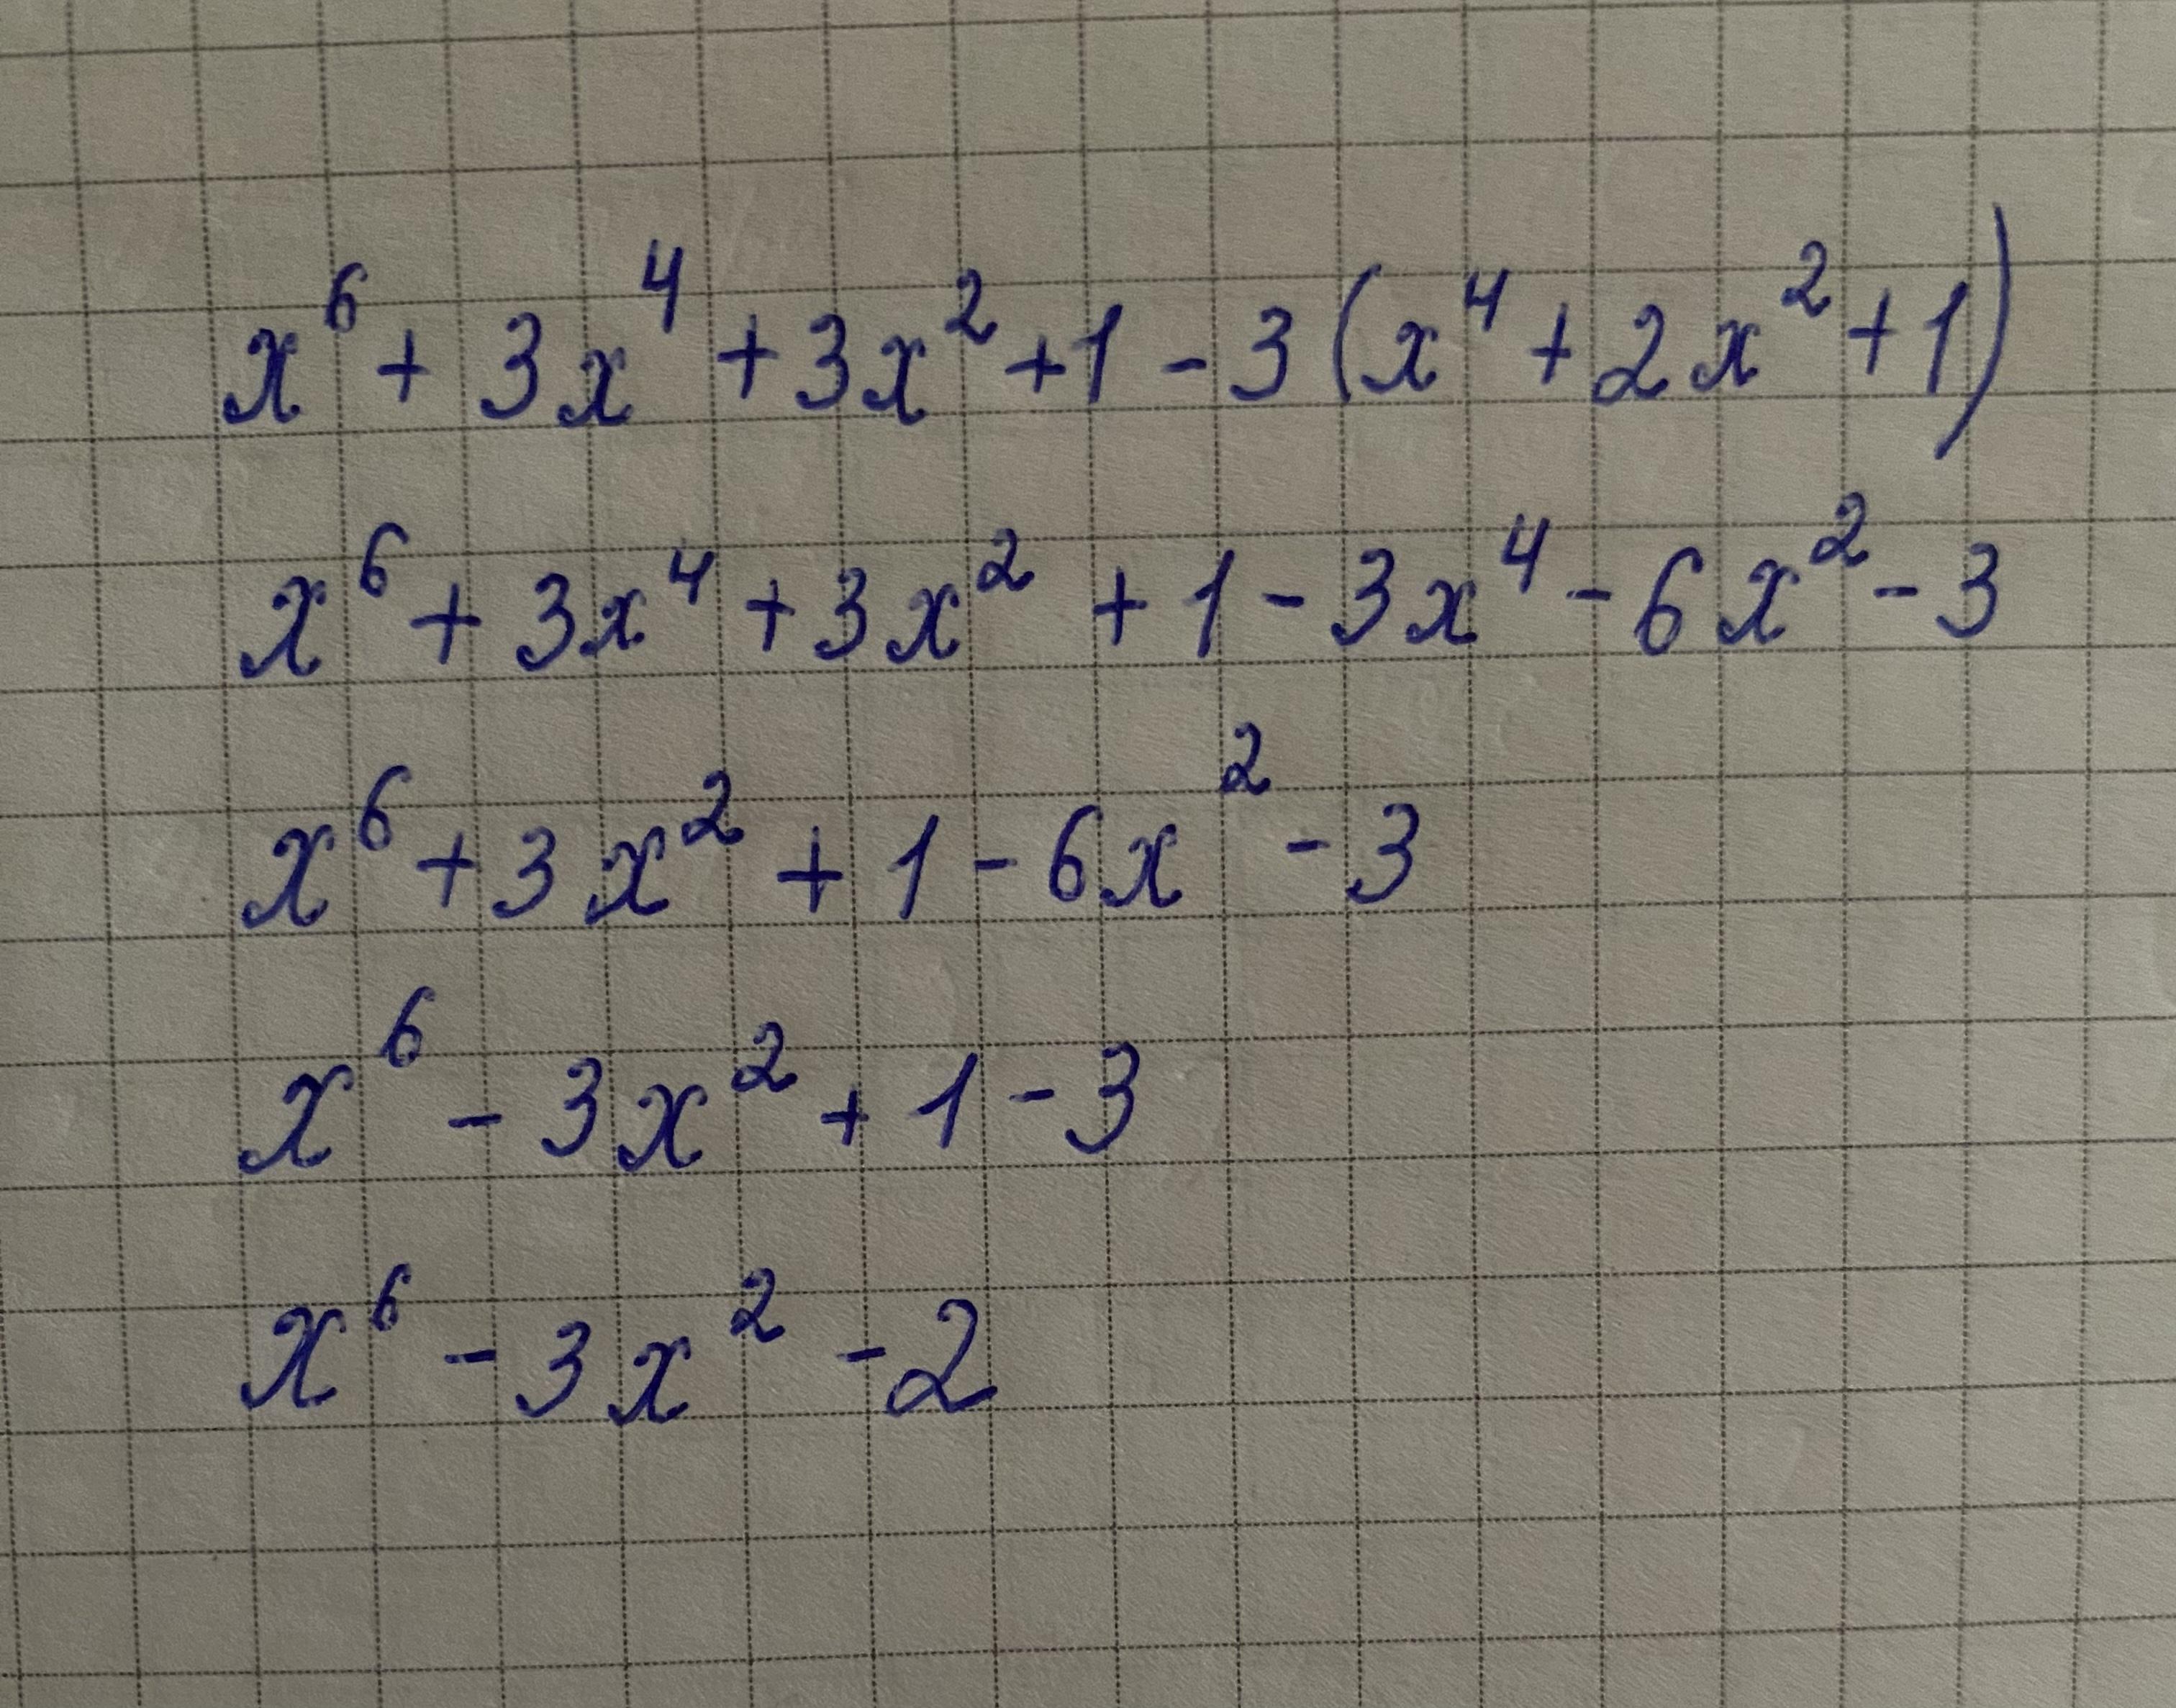 x⁶ + 3x⁴ + 3x² + 1 - 3(x⁴ + 2x² + 1)
x⁶ + 3x⁴ + 3x² + 1 - 3x⁴ - 6x² - 3
x⁶ + 3x² + 1 - 6x² - 3
x⁶ - 3x² + 1 - 3
x⁶ - 3x² - 2